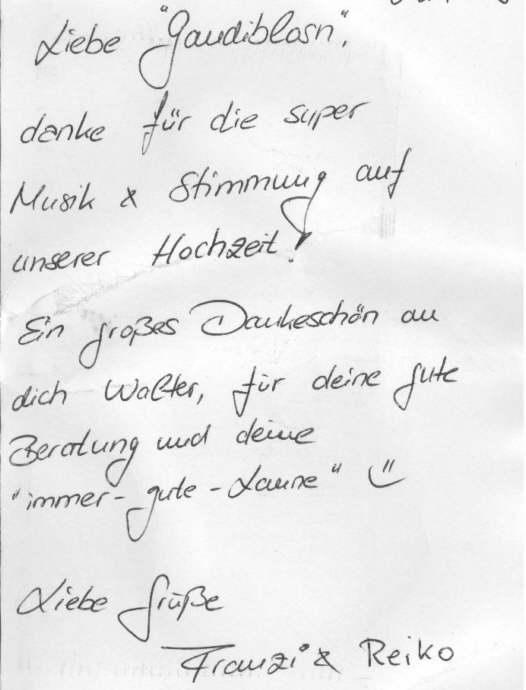 Liebe "Gaudiblosn",
danke für die super
Musik & Stimmung auf
unserer Hochzeit!
Ein großes Dankeschön an
dich Walter, für deine gute
Beratung und deine
"immer-gute-Laune" ☺
Liebe Grüße
Franzi & Reiko